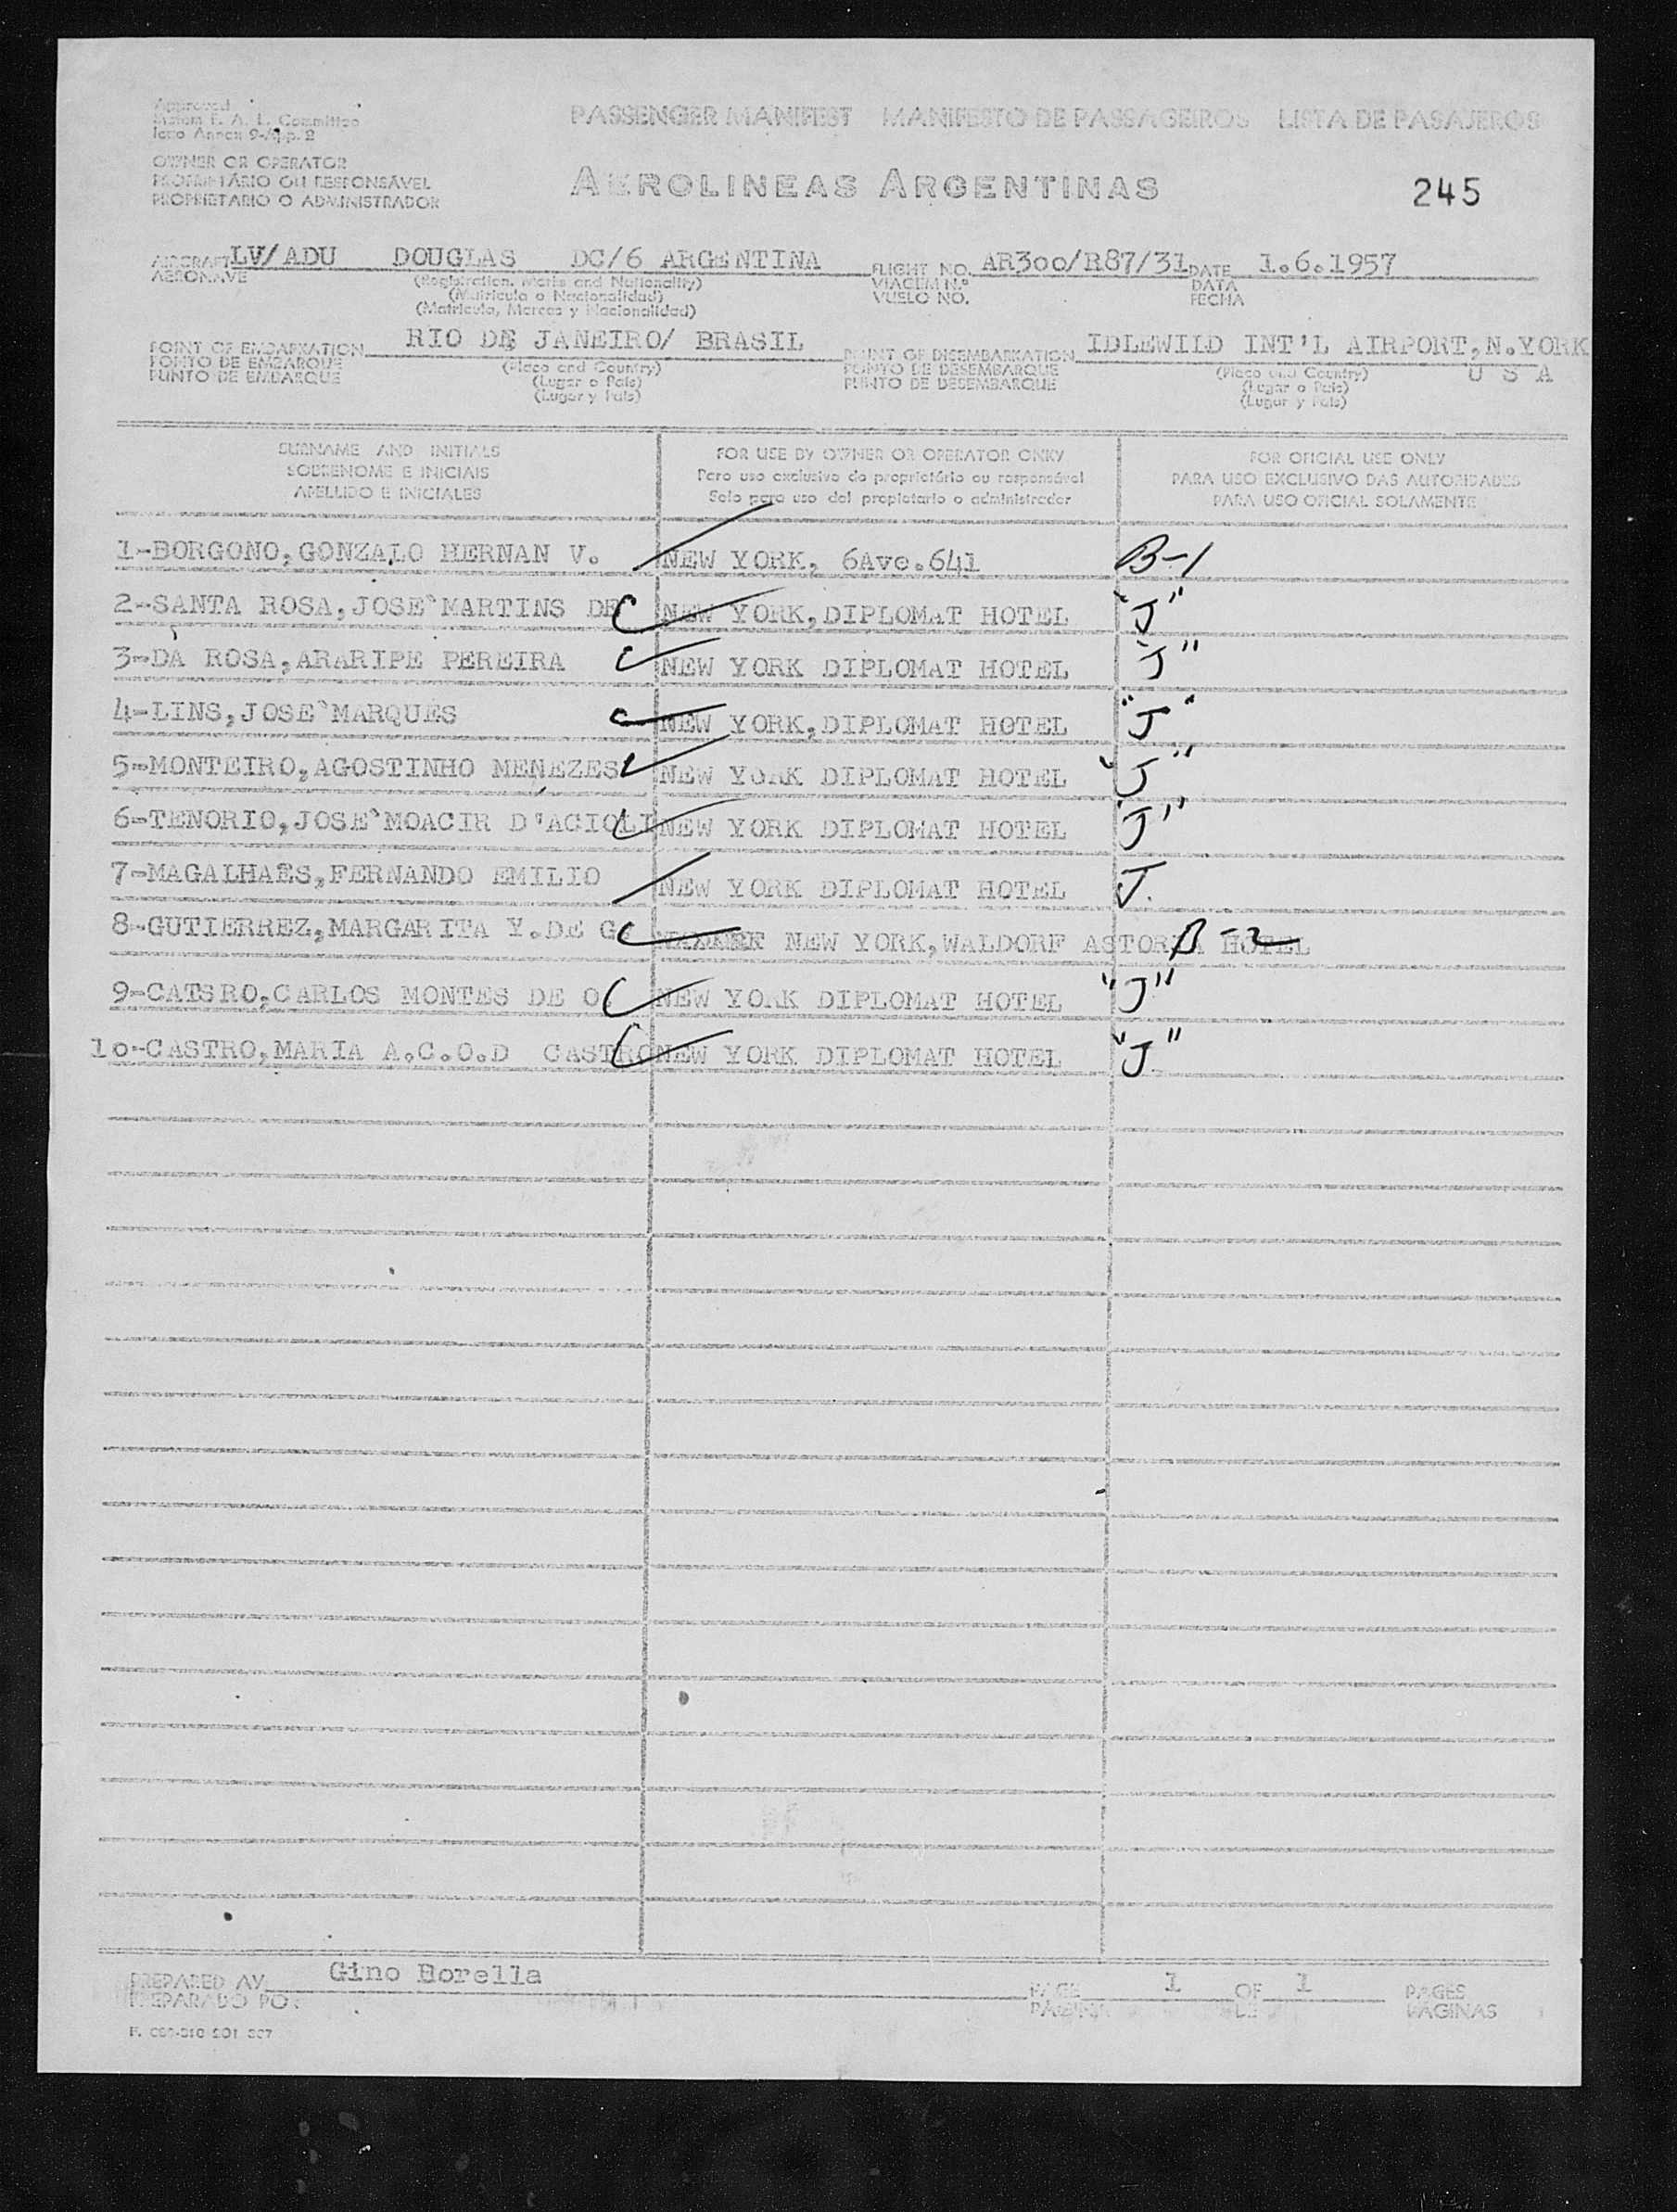 Approved
F. A. L. Committee
Icao Annex 9-App. 2
PASSENGER MANIFEST MANIFESTO DE PASSAGEIROS LISTA DE PASAJEROS
OWNER OR OPERATOR
PROPRIETÁRIO OU RESPONSÁVEL
PROPRIETARIO O ADMINISTRADOR
AEROLINEAS ARGENTINAS
245
AIRCRAFT LV/ADU DOUGLAS DC/6 ARGENTINA FLIGHT NO. AR300/R87/31 DATE 1.6.1957
AERONAVE (Registration, Marks and Nationality) VIAGEM N.º DATA
(Matricula o Nacionalidad) VUELO NO. FECHA
(Matricula, Marcas y Nacionalidad)
POINT OF EMBARKATION RIO DE JANEIRO/ BRASIL POINT OF DISEMBARKATION IDLEWILD INT'L AIRPORT,N.YORK
PONTO DE EMBARQUE (Place and Country) PONTO DE DESEMBARQUE (Place and Country) U S A
PUNTO DE EMBARQUE (Lugar o País) PUNTO DE DESEMBARQUE (Lugar o País)
(Lugar y País) (Lugar y País)
SURNAME AND INITIALS FOR USE BY OWNER OR OPERATOR ONKY FOR OFICIAL USE ONLY
SOBRENOME E INICIAIS Para uso exclusivo do proprietário ou responsável PARA USO EXCLUSIVO DAS AUTORIDADES
APELLIDO E INICIALES Solo para uso del propietario o administrador PARA USO OFICIAL SOLAMENTE
1-BORGONO,GONZALO HERNAN V. NEW YORK, 6Ave.641 B-1
2-SANTA ROSA,JOSE`MARTINS DE NEW YORK,DIPLOMAT HOTEL "J"
3-DA ROSA,ARARIPE PEREIRA NEW YORK DIPLOMAT HOTEL "J"
4-LINS,JOSE`MARQUES NEW YORK,DIPLOMAT HOTEL "J"
5-MONTEIRO,AGOSTINHO MENEZES NEW YORK DIPLOMAT HOTEL "J"
6-TENORIO,JOSE`MOACIR D'ACIOLI NEW YORK DIPLOMAT HOTEL "J"
7-MAGALHAES,FERNANDO EMILIO NEW YORK DIPLOMAT HOTEL J.
8-GUTIERREZ,MARGARITA Y.DE G. NEW YORK,WALDORF ASTORIA HOTEL B-2
9-CATSRO,CARLOS MONTES DE O. NEW YORK DIPLOMAT HOTEL "J"
10-CASTRO,MARIA A.C.O.D CASTRO NEW YORK DIPLOMAT HOTEL "J"
PREPARED AV Gino Borella PAGE 1 OF 1 PAGES
PREPARADO POR PAGINA DE PAGINAS